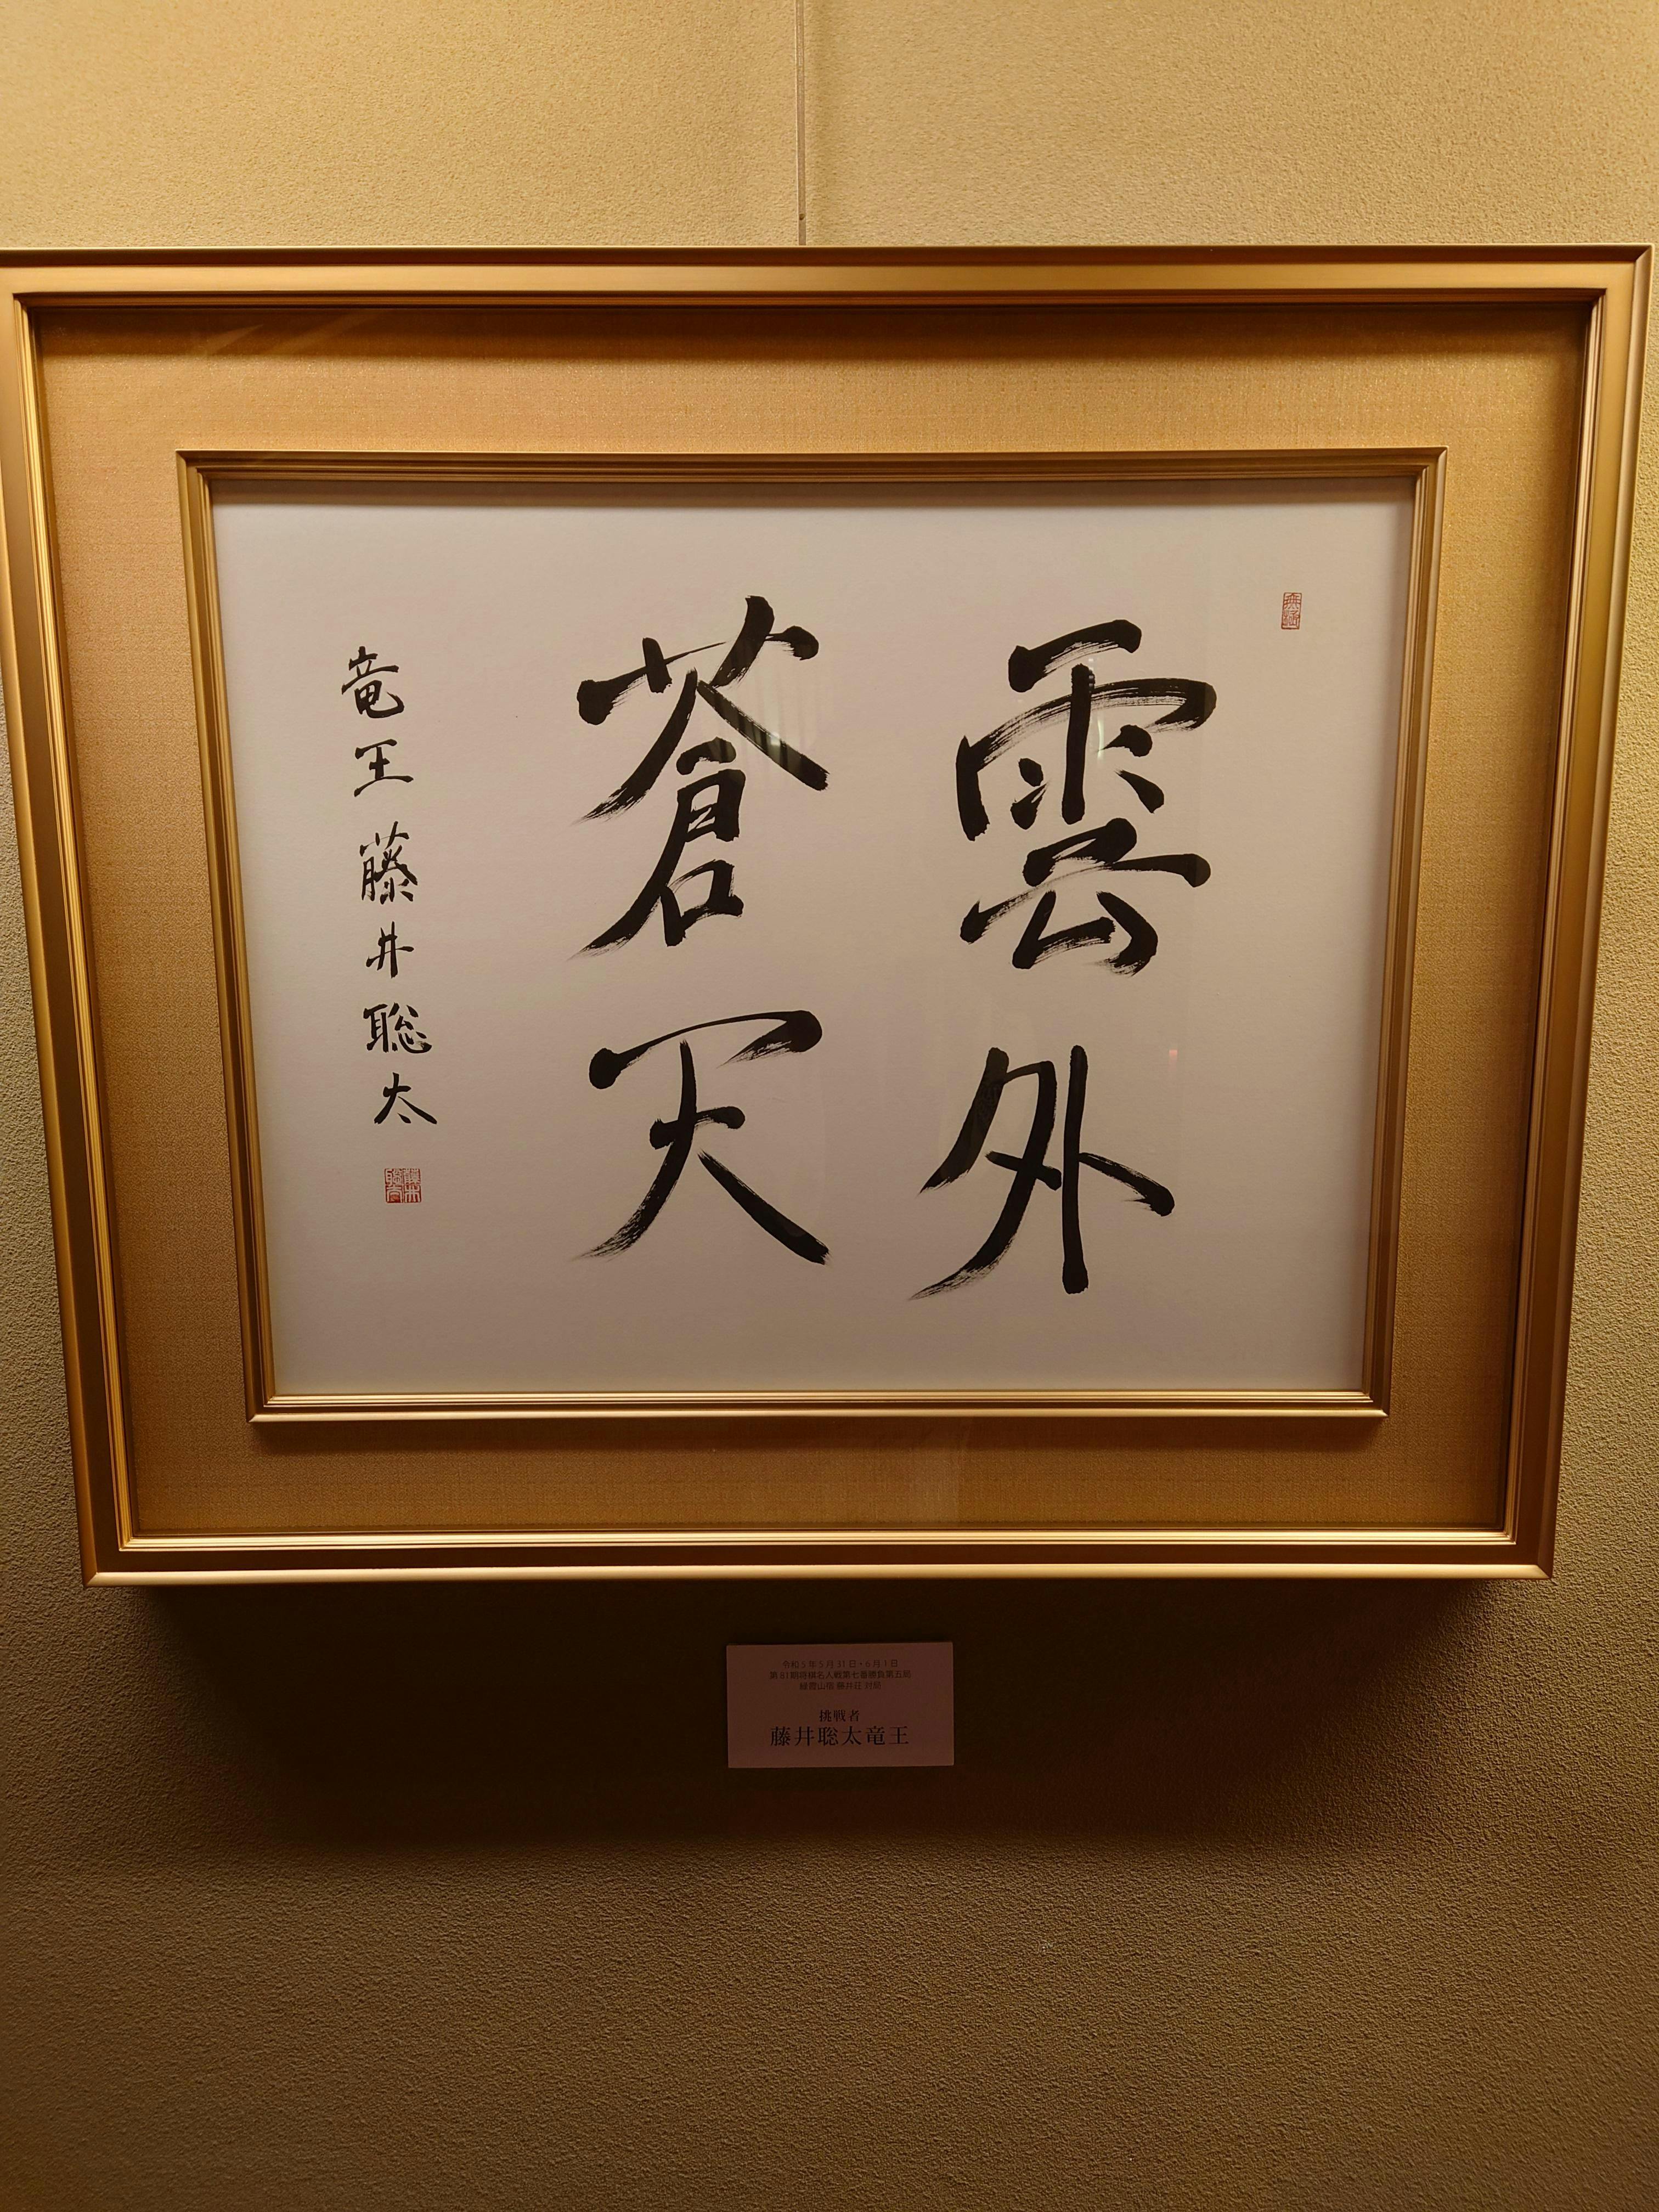 雲外
蒼天
竜王 藤井聡太
令和5年5月31日・6月1日
第81期将棋名人戦第七番勝負第五局
緑霞山宿 藤井荘 対局
挑戦者
藤井聡太竜王